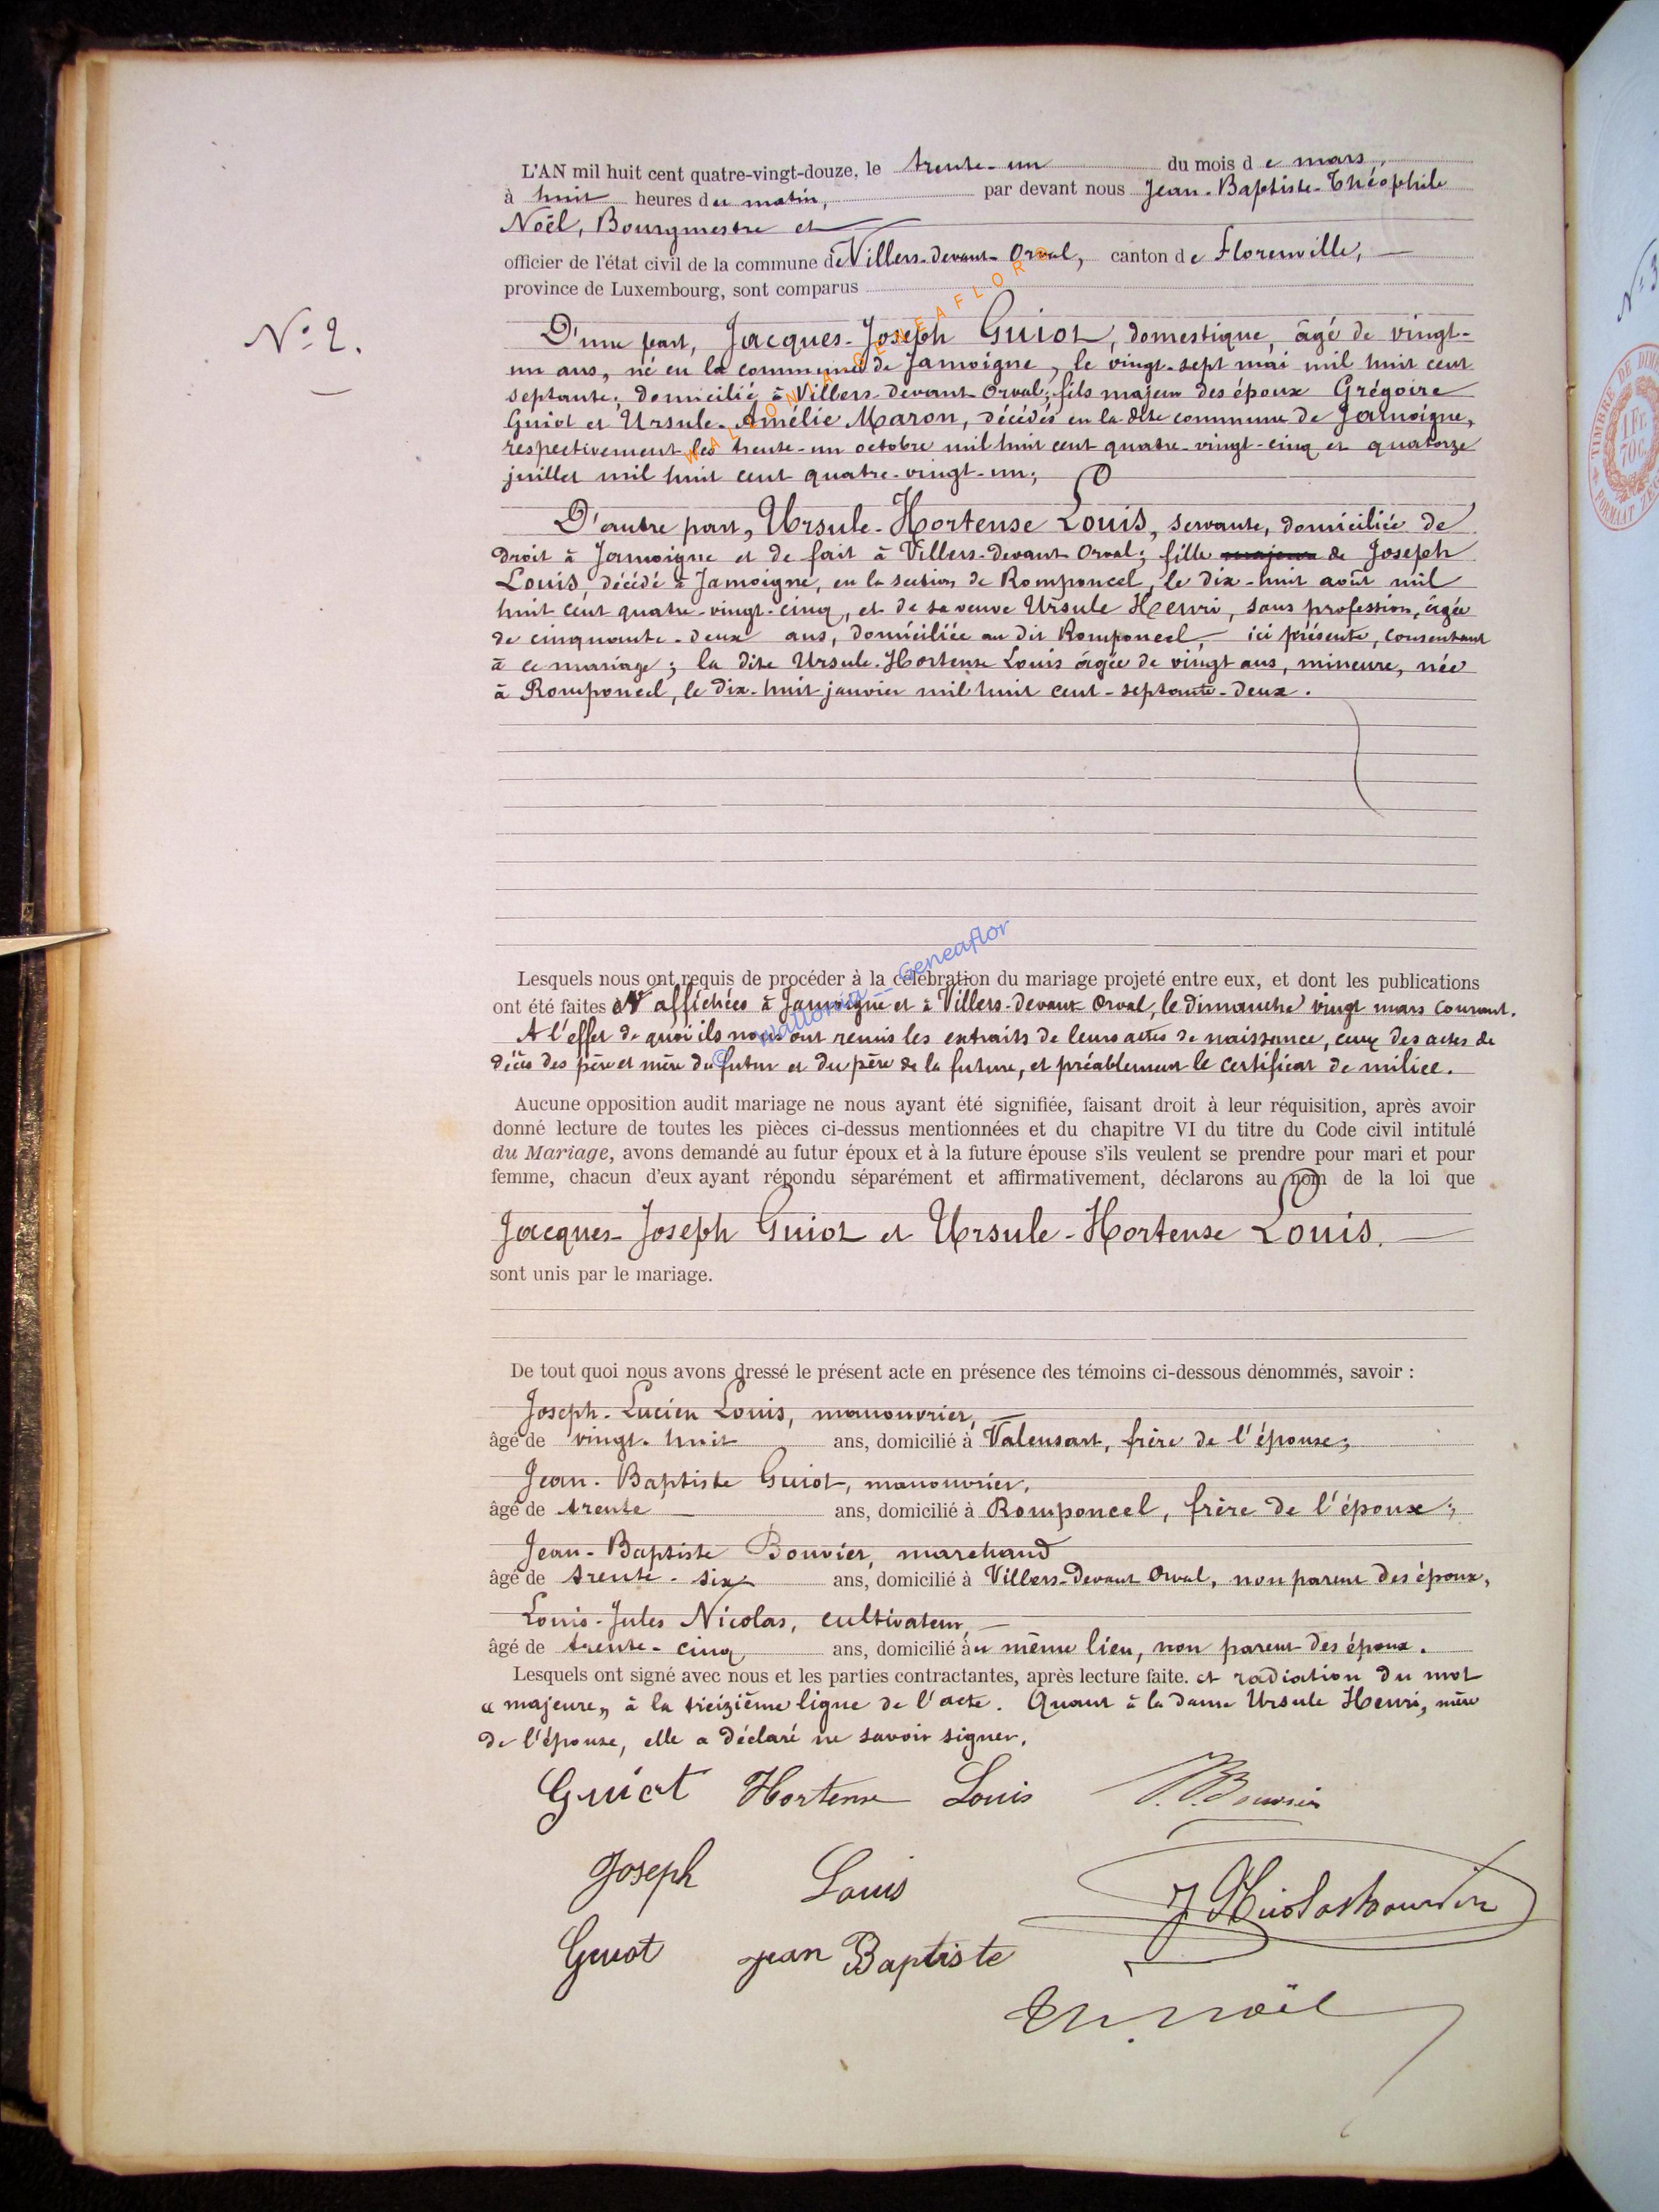 L'AN mil huit cent quatre-vingt-douze, le trente-un du mois de mars,
à huit heures du matin, par devant nous Jean-Baptiste-Théophile
Noël, Bourgmestre et
officier de l'état civil de la commune de Villers-devant-Orval, canton de Florenville,
province de Luxembourg, sont comparus
N° 2.
D'une part, Jacques-Joseph Guiot, domestique, âgé de vingt-
un ans, né en la commune de Jamoigne, le vingt-sept mai mil huit cent
septante; domicilié à Villers-devant-Orval; fils majeur des époux Grégoire
Guiot et Ursule-Amélie Maron, décédés en la dite commune de Jamoigne,
respectivement les trente-un octobre mil huit cent quatre-vingt-cinq et quatorze
juillet mil huit cent quatre-vingt-un;
D'autre part, Ursule-Hortense Louis, servante, domiciliée de
droit à Jamoigne et de fait à Villers-devant-Orval; fille majeure de Joseph
Louis, décédé à Jamoigne, en la section de Romponcel, le dix-huit août mil
huit cent quatre-vingt-cinq, et de sa veuve Ursule Henri, sans profession, âgée
de cinquante-deux ans, domiciliée au dit Romponcel, ici présente, consentant
à ce mariage; la dite Ursule-Hortense Louis âgée de vingt ans, mineure, née
à Romponcel, le dix-huit janvier mil huit cent-septante-deux.
Lesquels nous ont requis de procéder à la célébration du mariage projeté entre eux, et dont les publications
ont été faites et affichées à Jamoigne et à Villers-devant-Orval, le dimanche vingt mars courant.
A l'effet de quoi ils nous ont remis les extraits de leurs actes de naissance, ceux des actes de
décès des père et mère du futur et du père de la future, et préablement le certificat de milice.
Aucune opposition audit mariage ne nous ayant été signifiée, faisant droit à leur réquisition, après avoir
donné lecture de toutes les pièces ci-dessus mentionnées et du chapitre VI du titre du Code civil intitulé
du Mariage, avons demandé au futur époux et à la future épouse s'ils veulent se prendre pour mari et pour
femme, chacun d'eux ayant répondu séparément et affirmativement, déclarons au nom de la loi que
Jacques-Joseph Guiot et Ursule-Hortense Louis.
sont unis par le mariage.
De tout quoi nous avons dressé le présent acte en présence des témoins ci-dessous dénommés, savoir :
Joseph-Lucien Louis, manouvrier,
âgé de vingt-huit ans, domicilié à Valensart, frère de l'épouse;
Jean-Baptiste Guiot, manouvrier,
âgé de trente ans, domicilié à Romponcel, frère de l'époux;
Jean-Baptiste Bouvier, marchand
âgé de trente-six ans, domicilié à Villers-devant Orval, non parent des époux,
Louis-Jules Nicolas, cultivateur,
âgé de trente-cinq ans, domicilié au même lieu, non parent des époux.
Lesquels ont signé avec nous et les parties contractantes, après lecture faite. et radiation du mot
"majeure" à la treizième ligne de l'acte. Quant à la dame Ursule Henri, mère
de l'épouse, elle a déclaré ne savoir signer.
Guiot Hortense Louis J.B. Bouvier
Joseph Louis
Guiot jean Baptiste
Th. Noël
WALLONIA GENEAFLOR
© Wallonia - Geneaflor
N° 3
TIMBRE DE DIM
1 FR. 70C.